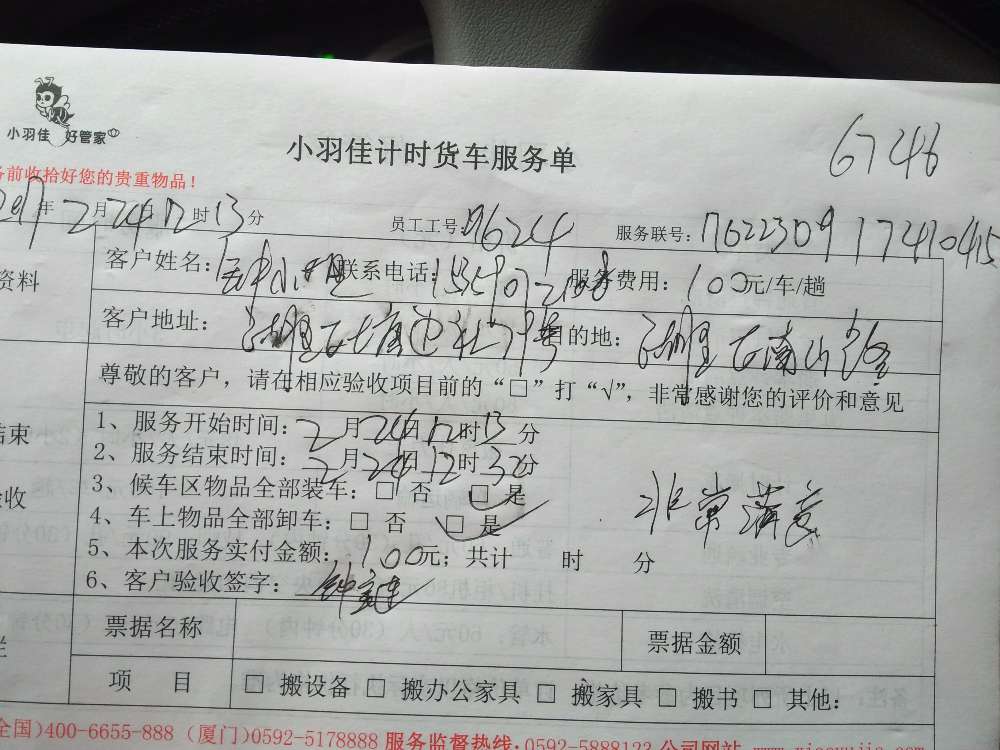 小羽佳 好管家
小羽佳计时货车服务单
6748
前收拾好您的贵重物品！
2017年2月24日12时13分 员工工号:9624 服务联号:
资料
客户姓名: 联系电话: 服务费用: 100元/车/趟
客户地址: 湖里 目的地: 湖里
尊敬的客户，请在相应验收项目前的“□”打“√”，非常感谢您的评价和意见
结束
验收
1、服务开始时间: 2月24日12时13分
2、服务结束时间: 2月24日12时32分
3、候车区物品全部装车: □ 否 □ 是
4、车上物品全部卸车: □ 否 □ 是
非常满意
5、本次服务实付金额: 100元；共计 时 分
6、客户验收签字:
票据名称 票据金额
项 目 □ 搬设备 □ 搬办公家具 □ 搬家具 □ 搬书 □ 其他:
全国)400-6655-888 (厦门)0592-5178888 服务监督热线:0592-5888123 公司网站